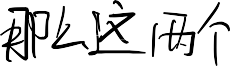 那么这两个